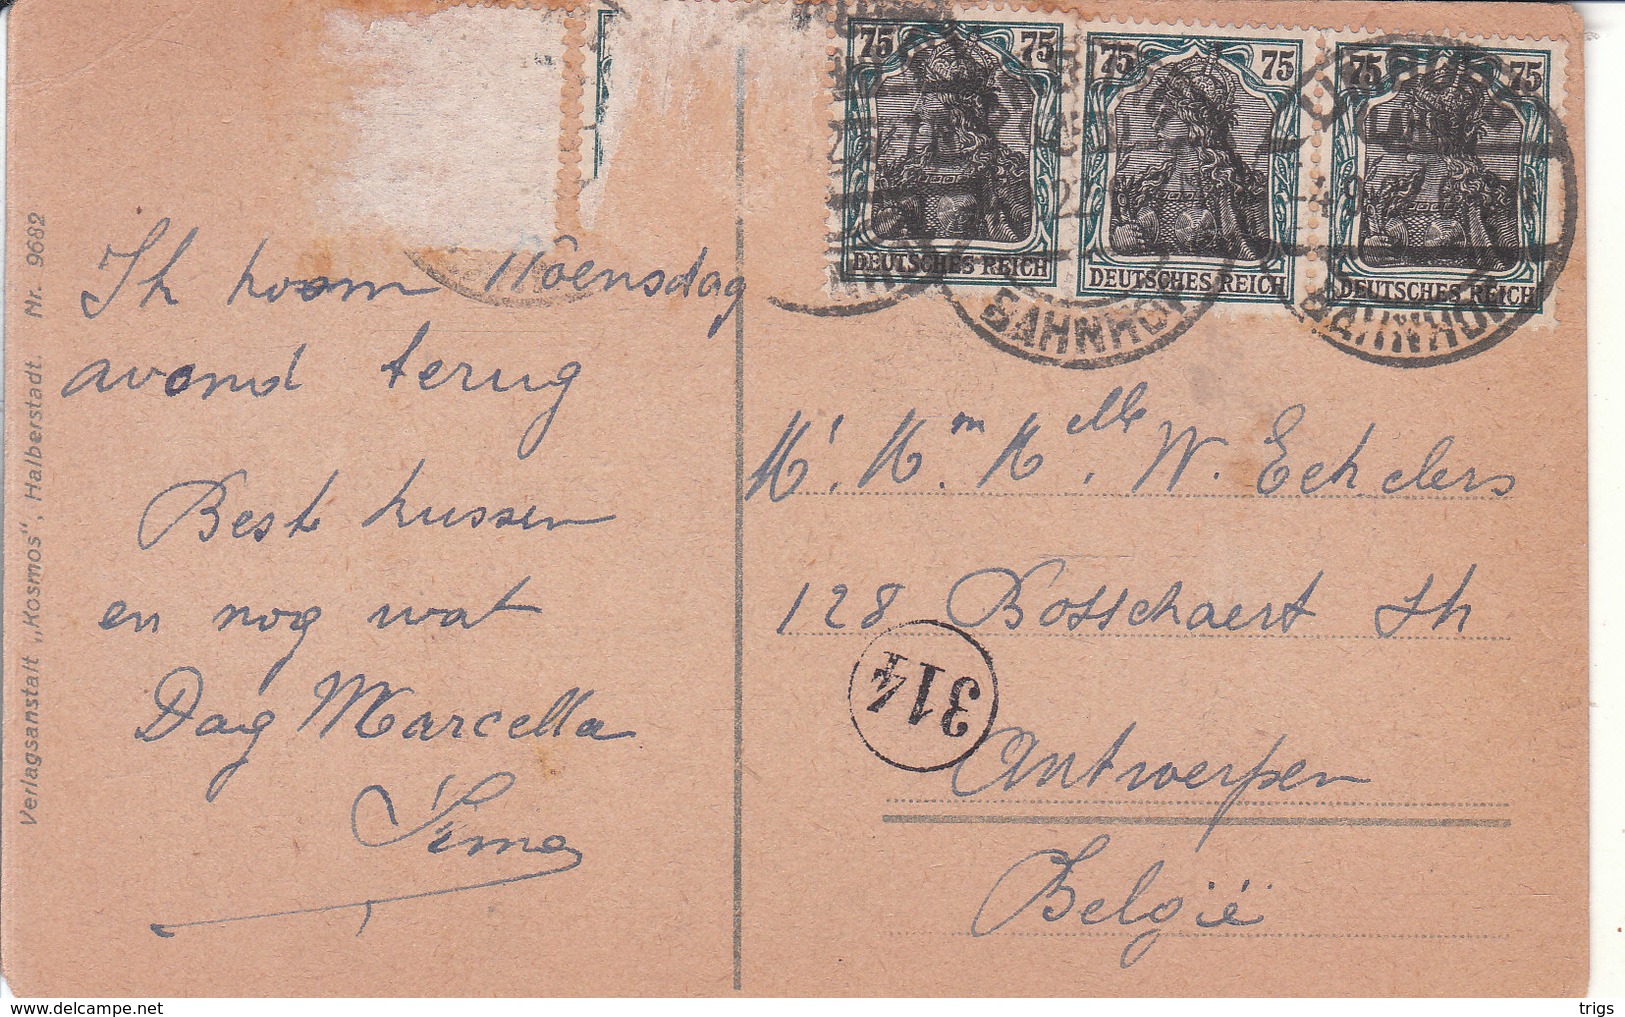 75 75
DEUTSCHES REICH
75 75
DEUTSCHES REICH
75 75
DEUTSCHES REICH
BAHNHOF
BAHNHOF
Ik koom Woensdag
avond terug
Best kussen
en nog wat
Dag Marcella
Sima
Mr. Mm Melle. W. Eekelers
128 Bosschaert Str
Antwerpen
België
314
Verlagsanstalt „Kosmos“, Halberstadt. Nr. 9682
trigs